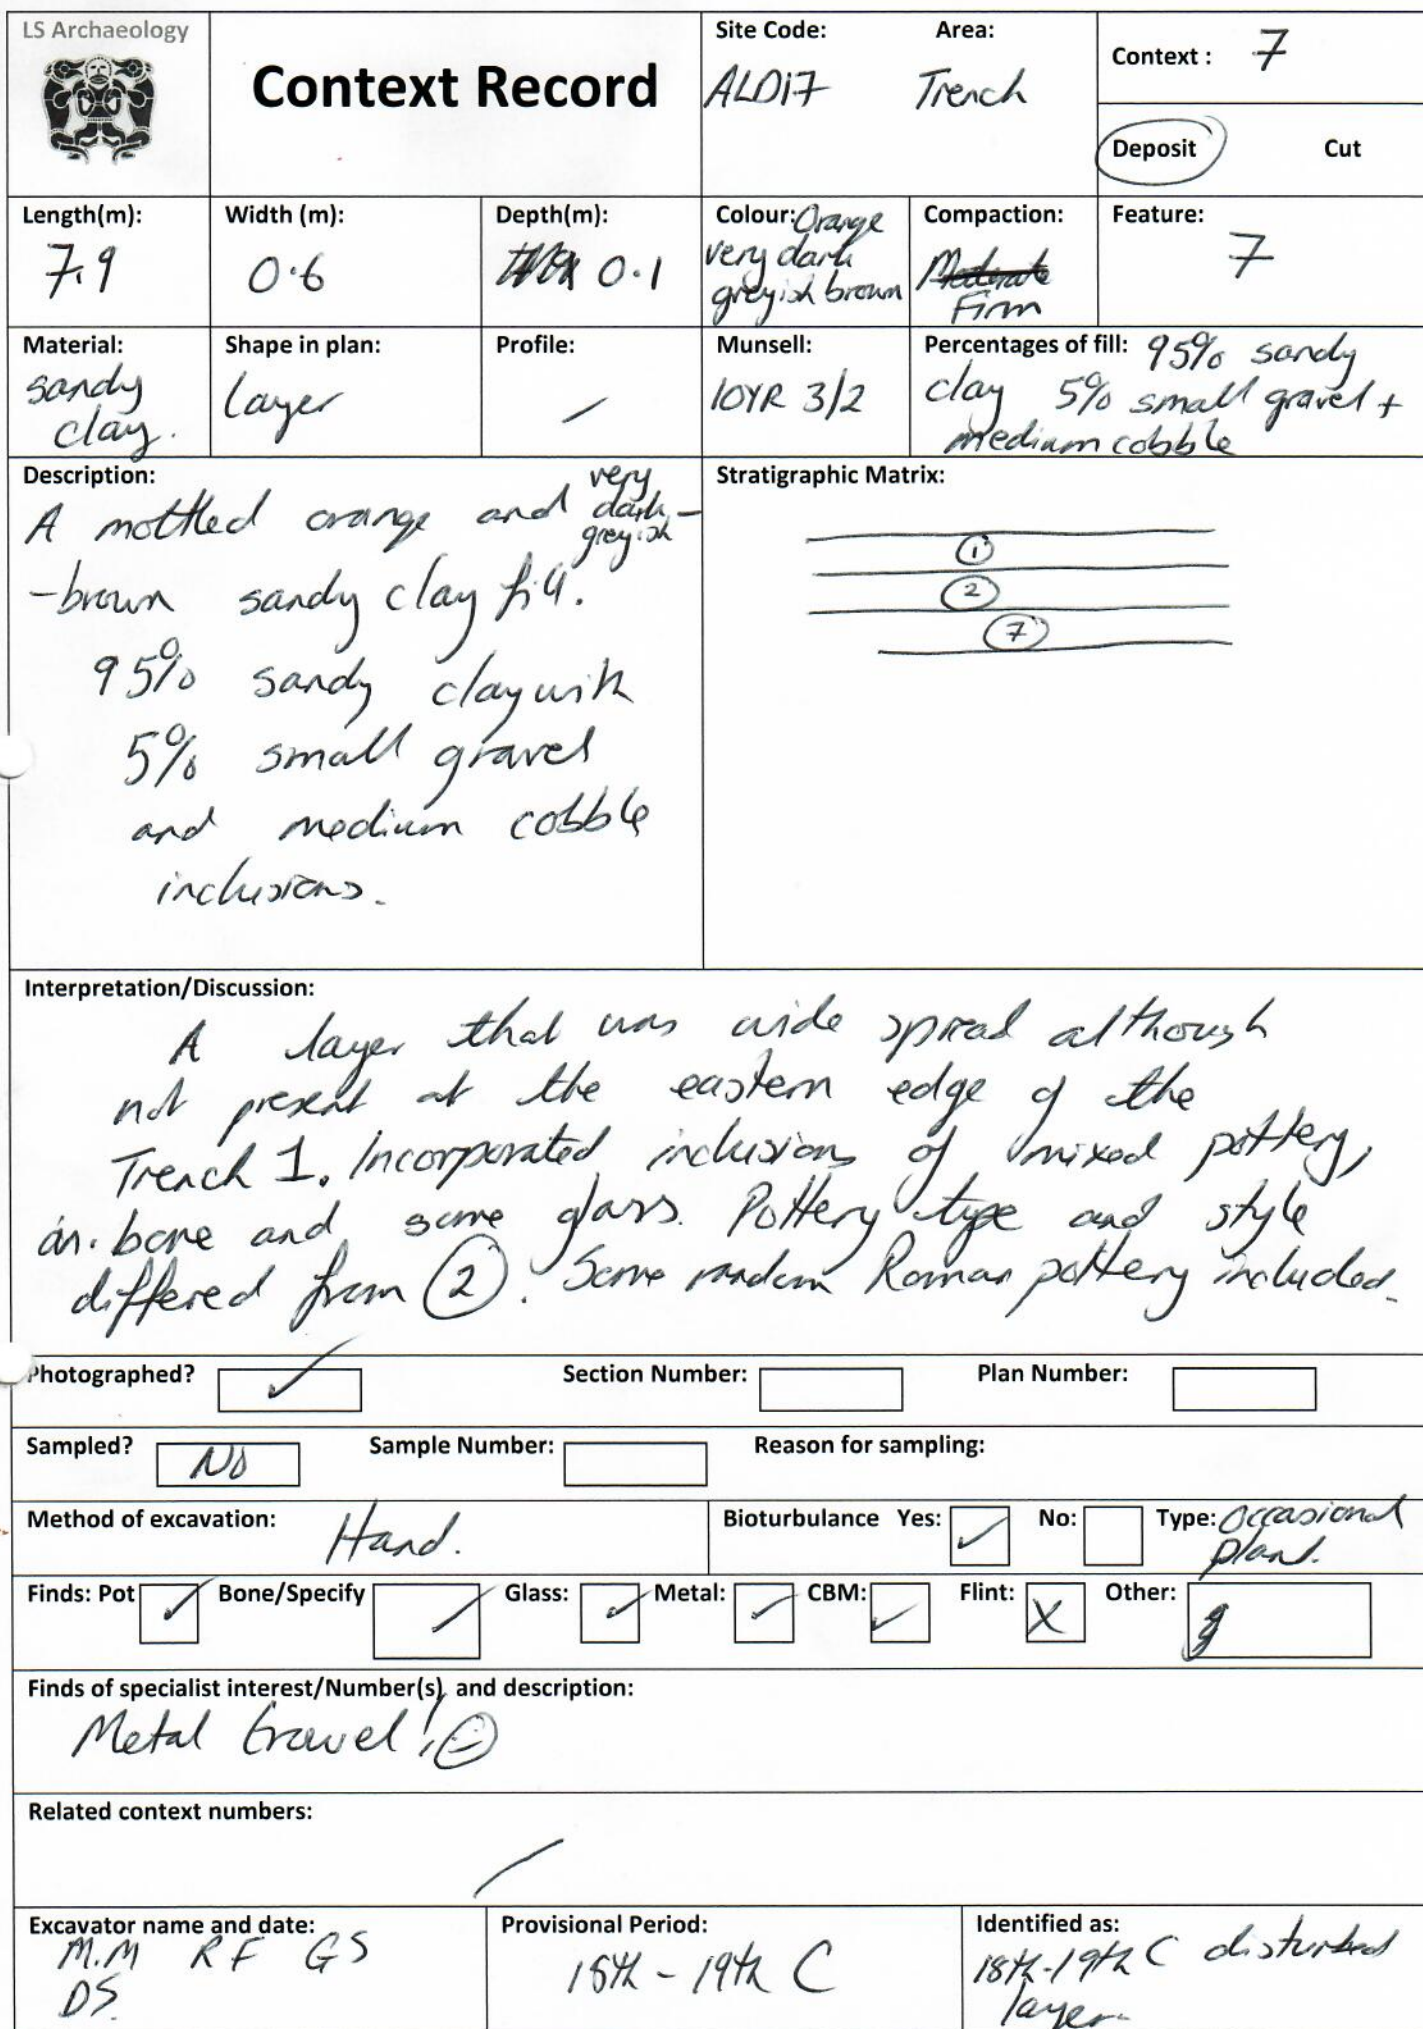 LS Archaeology
Context Record
Site Code:
ALD17
Area:
Trench
Context : 7
Deposit Cut
Length(m):
7.9
Width (m):
0.6
Depth(m):
0.1
Colour: Orange
very dark
greyish brown
Compaction:
Moderate
Firm
Feature:
7
Material:
sandy
clay.
Shape in plan:
layer
Profile:
/
Munsell:
10YR 3/2
Percentages of fill: 95% sandy
clay 5% small gravel +
medium cobble
Description:
A mottled orange and very dark - greyish
-brown sandy clay fill.
95% sandy clay with
5% small gravel
and medium cobble
inclusions.
Stratigraphic Matrix:
1
2
7
Interpretation/Discussion:
A layer that was wide spread although
not present at the eastern edge of the
Trench 1. Incorporated inclusions of mixed pottery,
an. bone and some glass. Pottery type and style
differed from (2). Some random Roman pottery included.
Photographed? ✓ Section Number: Plan Number:
Sampled? NO Sample Number: Reason for sampling:
Method of excavation: Hand.
Bioturbulance Yes: ✓ No: Type: Occasional
plant.
Finds: Pot ✓ Bone/Specify / Glass: ✓ Metal: ✓ CBM: ✓ Flint: X Other:
Finds of specialist interest/Number(s) and description:
Metal trowel!
Related context numbers:
/
Excavator name and date:
M.M RF GS
DS.
Provisional Period:
18th - 19th C
Identified as:
18th-19th C disturbed
layer.